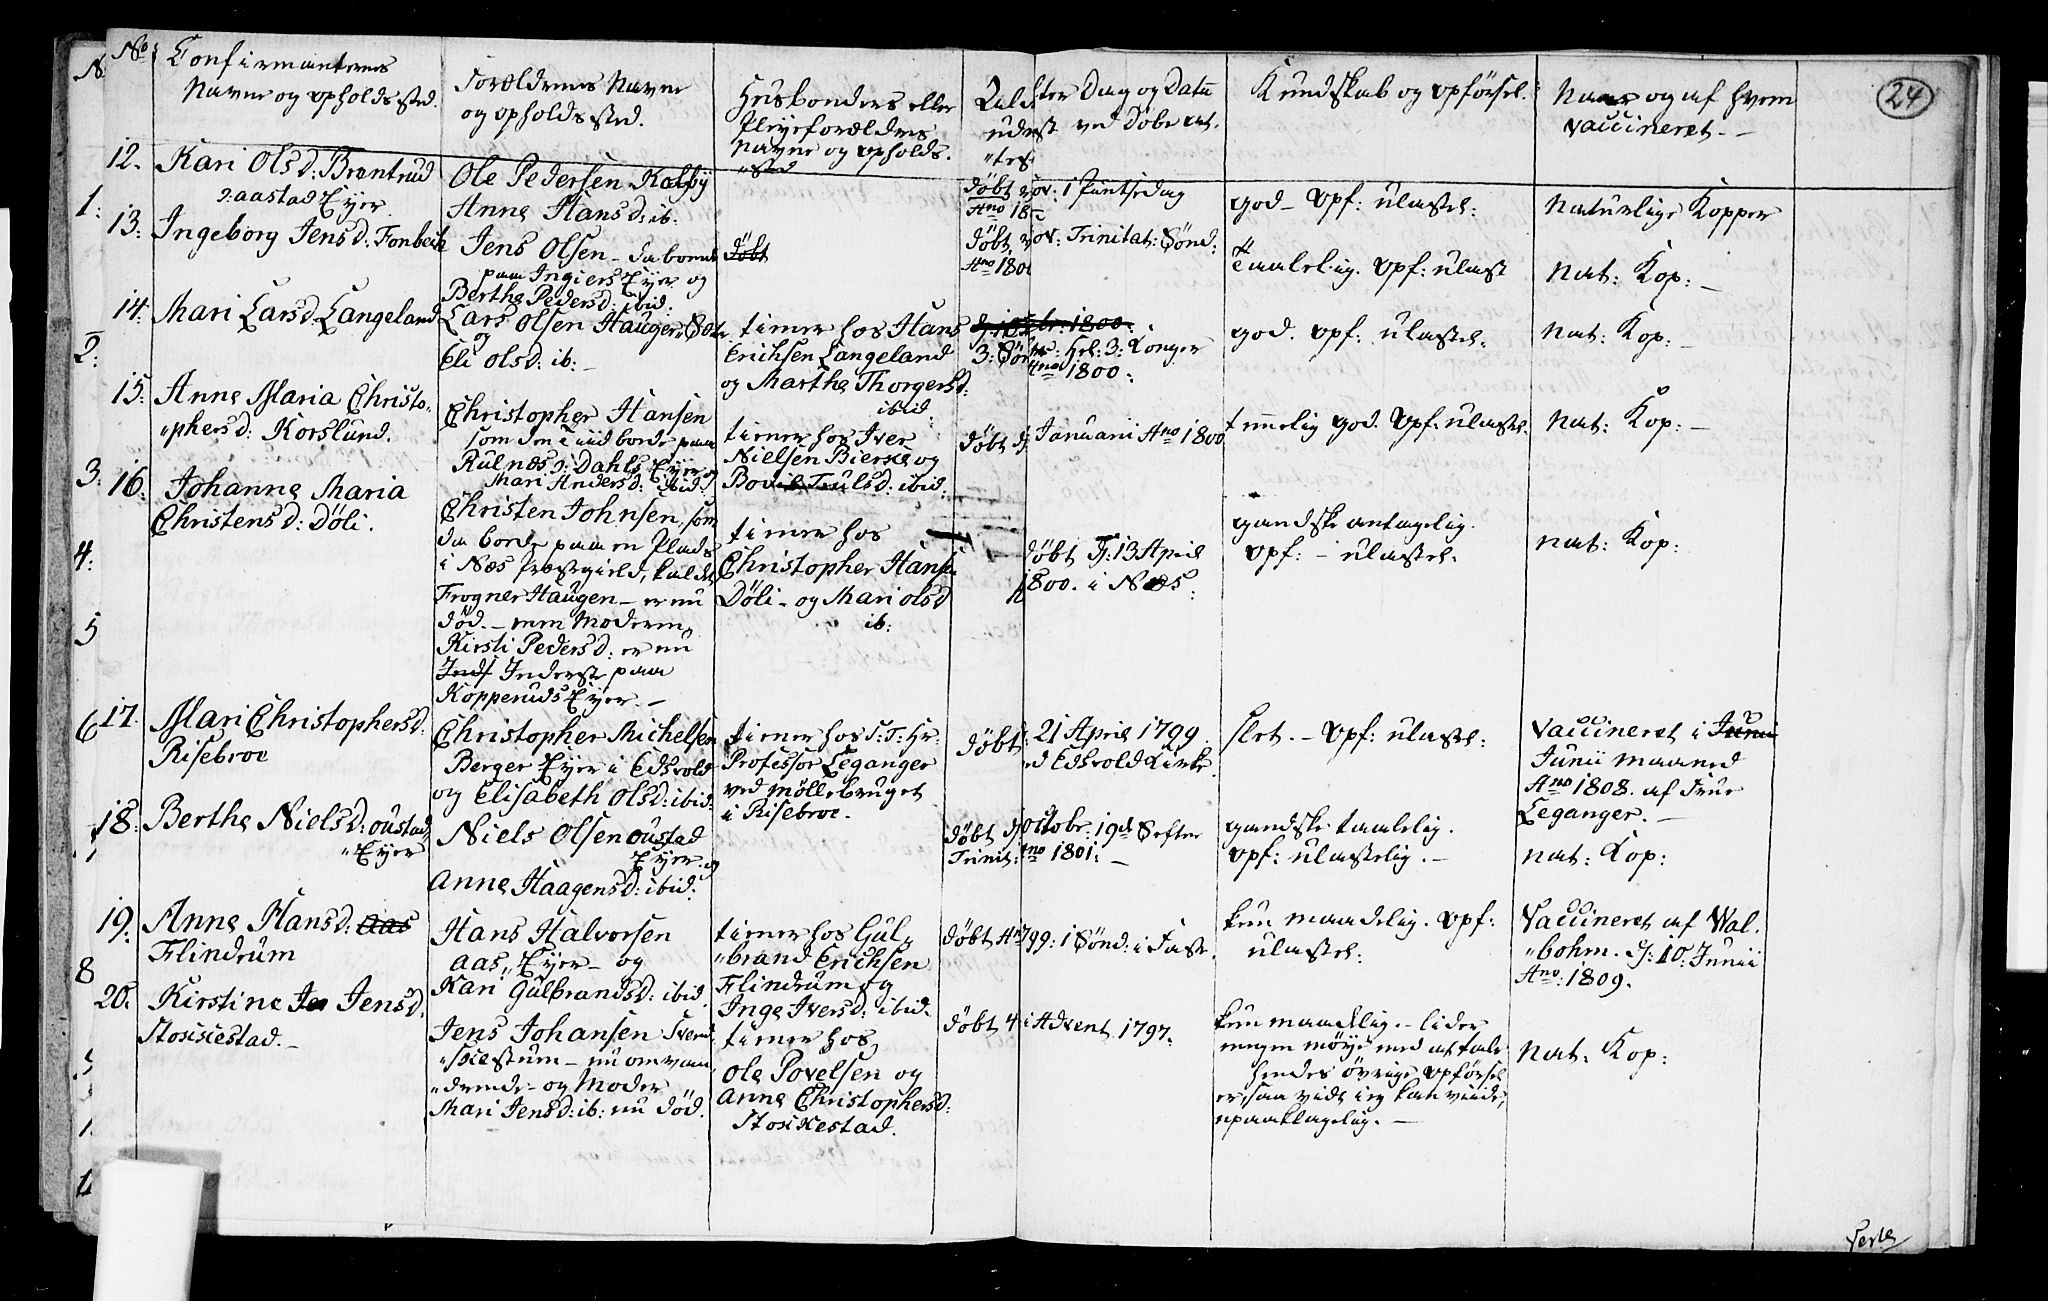 No
Confirmanternes
Navne og opholdssted.
Forældrenes Navne
og opholdssted.
Husbonders eller
Pleyeforældres
Navne og opholds-
"sted
Alder
efter Dag og Datu
udest
ved Døbe att.
"tes
Kundskab og opførsel.
Naar og af hvem
vaccineret. -
24
12. Kari Olsd: Brøntrud
Ɔ: aastad Eyer.
Ole Pedersen Kalby
Anne Hansd: ib.
døbt
1 Pintsedag
Ano 18
god - opf: ulastel:
Naturlige Kopper
1:
13: Ingeborg Jensd: Fonbech
Jens Olsen - da boende
paa Ingiers Eyer og
Berthe Pedersd: ibid:
døbt
døbt
Trinitat: Sønd:
Ano 180
Taalelig. opf: ulast
Nat: Kop: -
14: Mari Larsd: Langeland
Lars Olsen Hauger Sæter
og
Eli Olsd: ib: -
tiener hos Hans
Erichsen Langeland
og Marthe Thorgersd:
ibid.
br: 1800.
3: Søn
Hel: 3: Konger
Ano 1800:
god. opf: ulastel:
Nat: Kop: -
2:
15: Anne Maria Christo-
"phersd: Korslund.
Christopher Hansen
som den Tiid boede paa
Rulnæs Ɔ: Dahls Eyer og
Mari Andersd: ibid:
tiener hos Iver
Nielsen Bierke og
Bodil Trulsd: ibid:
døbt d:
Januarii Ano 1800
temmelig god. opf: ulastel.
Nat: Kop: -
3:
16: Johanne Maria
Christensd: Døli.
Christen Johnsen, som
da boede paa en Plads
i Næs Præstegield, kaldet
Frogner Haugen - er nu
død. - men Moderen,
Kirsti Pedersd: er nu
Inds Inderste paa
Kopperuds Eyer. -
tiener hos
Christopher Hanse
Døli - og Mari Olsd
ib:
døbt d: 13 April
1800. i Næs:
gandske antagelig.
opf: - ulastel:
Nat: Kop:
4:
5
6
17. Mari Christophersd:
Risebroe
Christopher Michelsen
Berger Eyer i Edsvold
og Elisabeth Olsd: ibid:
tiener hos S: T: Hr.
Professor Leganger
ved Møllebruget
i Risebroe.
døbt: 21 April 1799.
Edsvold Kirke
slet. - opf: ulastel:
Vaccineret i Junii
Junii Maaned
Ano 1808. af Frue
Leganger. -
18: Berthe Nielsd: Oustad,
"Eyer
Niels Olsen Oustad
Eyer. og
Anne Haagensd: ibid:
døbt d octobr. 19d S efter
Trinit: Ano 1801: -
gandske taalelig.
opf: ulastelig. -
Nat: Kop:
19. Anne Hansd: Aas
Flindrum
Hans Halvorsen
Aas, Eyer - og
Kari Gulbrandsd: ibid.
tiener hos Gul-
"brand Erichsen
Flindrum og
Inge Iversd: ibid.
døbt
99: 1 Sønd: i Faste.
kun maadelig. opf:
ulastel:
Vaccineret af Wal-
"bohm. d: 10: Junii
Ano: 1809.
8
20. Kirstine Je Jensd.
Stoxkestad. -
Jens Johansen Svend-
- nu omvan-
"drende - og Moder
Mari Jensd: ib: nu død.
tiener hos
Ole Povelsen og
Anne Christophersd:
Stoxkestad.
døbt 4 i Advent 1797.
kun maadelig. - lider
megen møye med at tale
hendes øvrige opførsel
er, saa vidt ieg kan viide,
upaaklagelig. -
Nat: Kop: